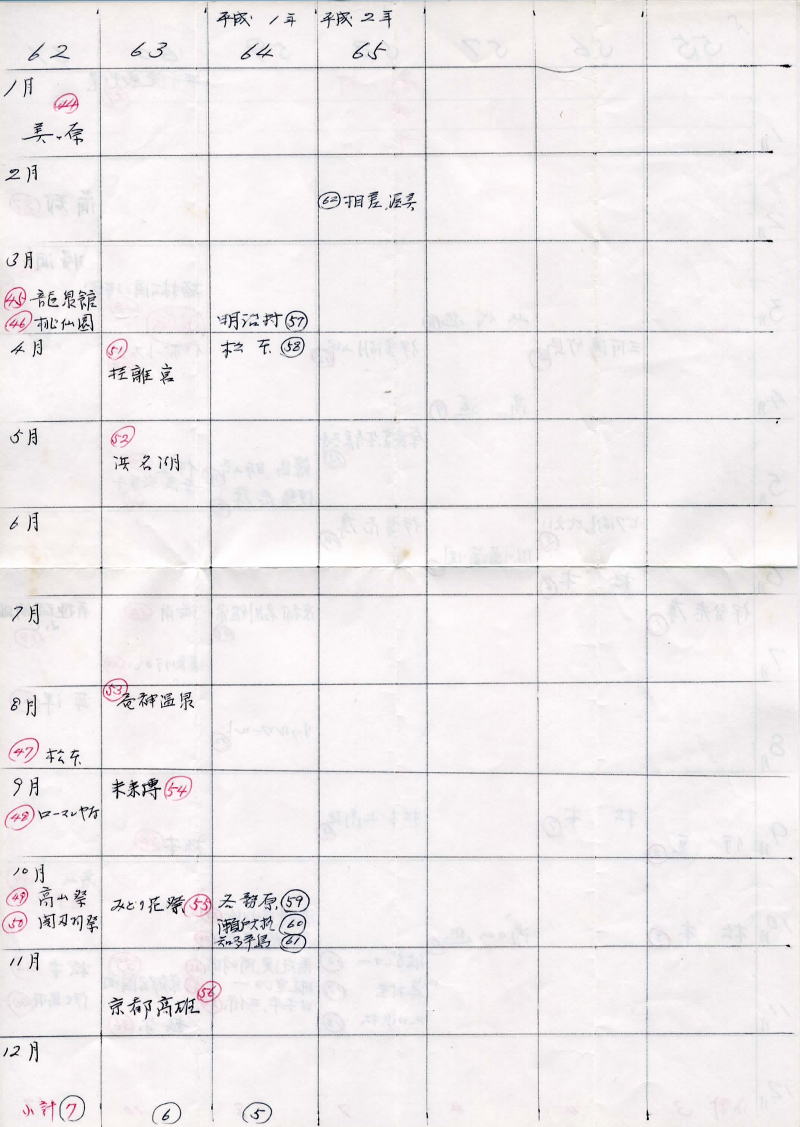 平成1年 平成2年
62 63 64 65
1月
44
美ヶ原
2月
62 相差
3月
45 龍泉館
46 桃仙園
明治村 57
4月
51
桂離宮
松本 58
5月
52
浜名湖
6月
7月
8月
53
昼神温泉
47 松本
9月
未来博 54
48
10月
49 高山祭
みどり花祭 55
50 関刃物祭
59
瀬戸大橋 60
知多半島 61
11月
56
京都高雄
12月
小計 7
6
5